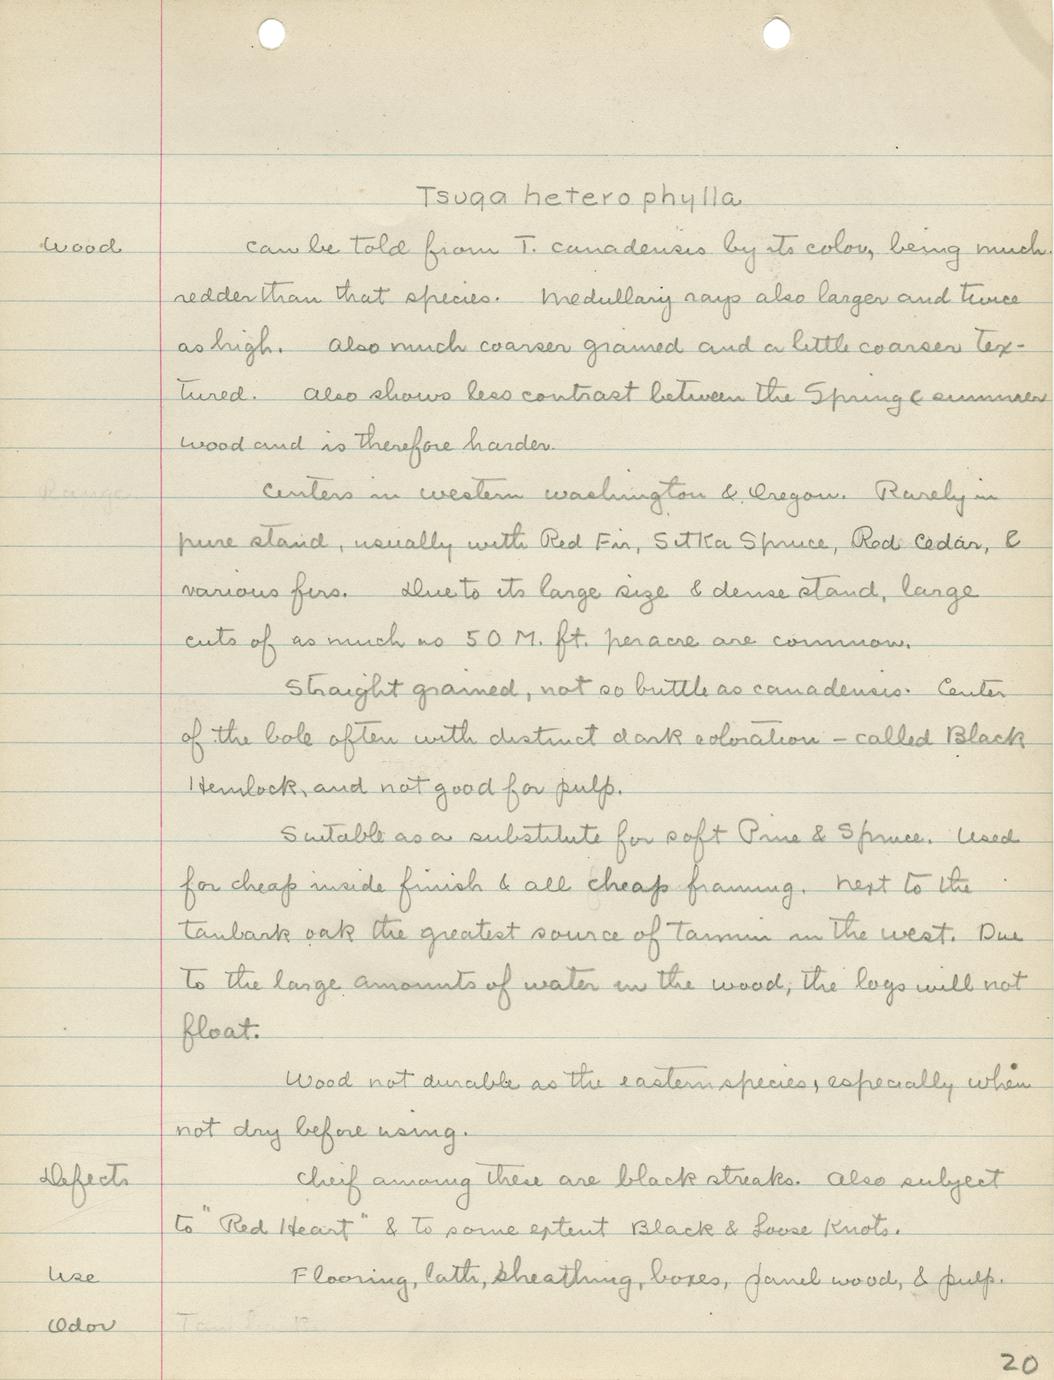 Tsuga heterophylla
Wood can be told from T. canadensis by its color, being much
redder than that species. Medullary rays also larger and twice
as high. Also much coarser grained and a little coarser tex-
tured. Also shows less contrast between the Spring & summer
wood and is therefore harder.
Range Centers in western washington & Oregon. Rarely in
pure stand, usually with Red Fir, Sitka Spruce, Red Cedar, &
various firs. Due to its large size & dense stand, large
cuts of as much as 50 M. ft. per acre are common.
Straight grained, not so brittle as canadensis. Center
of the bole often with distinct dark coloration - called Black
Hemlock, and not good for pulp.
Suitable as a substitute for soft Pine & Spruce. Used
for cheap inside finish & all cheap framing. Next to the
tanbark oak the greatest source of Tannin in the west. Due
to the large amounts of water in the wood, the logs will not
float.
Wood not durable as the eastern species, especially when
not dry before using.
Defects Cheif among these are black streaks. Also subject
to "Red Heart" & to some extent Black & Loose Knots.
Use Flooring, lath, sheathing, boxes, panel wood, & pulp.
Odor
20